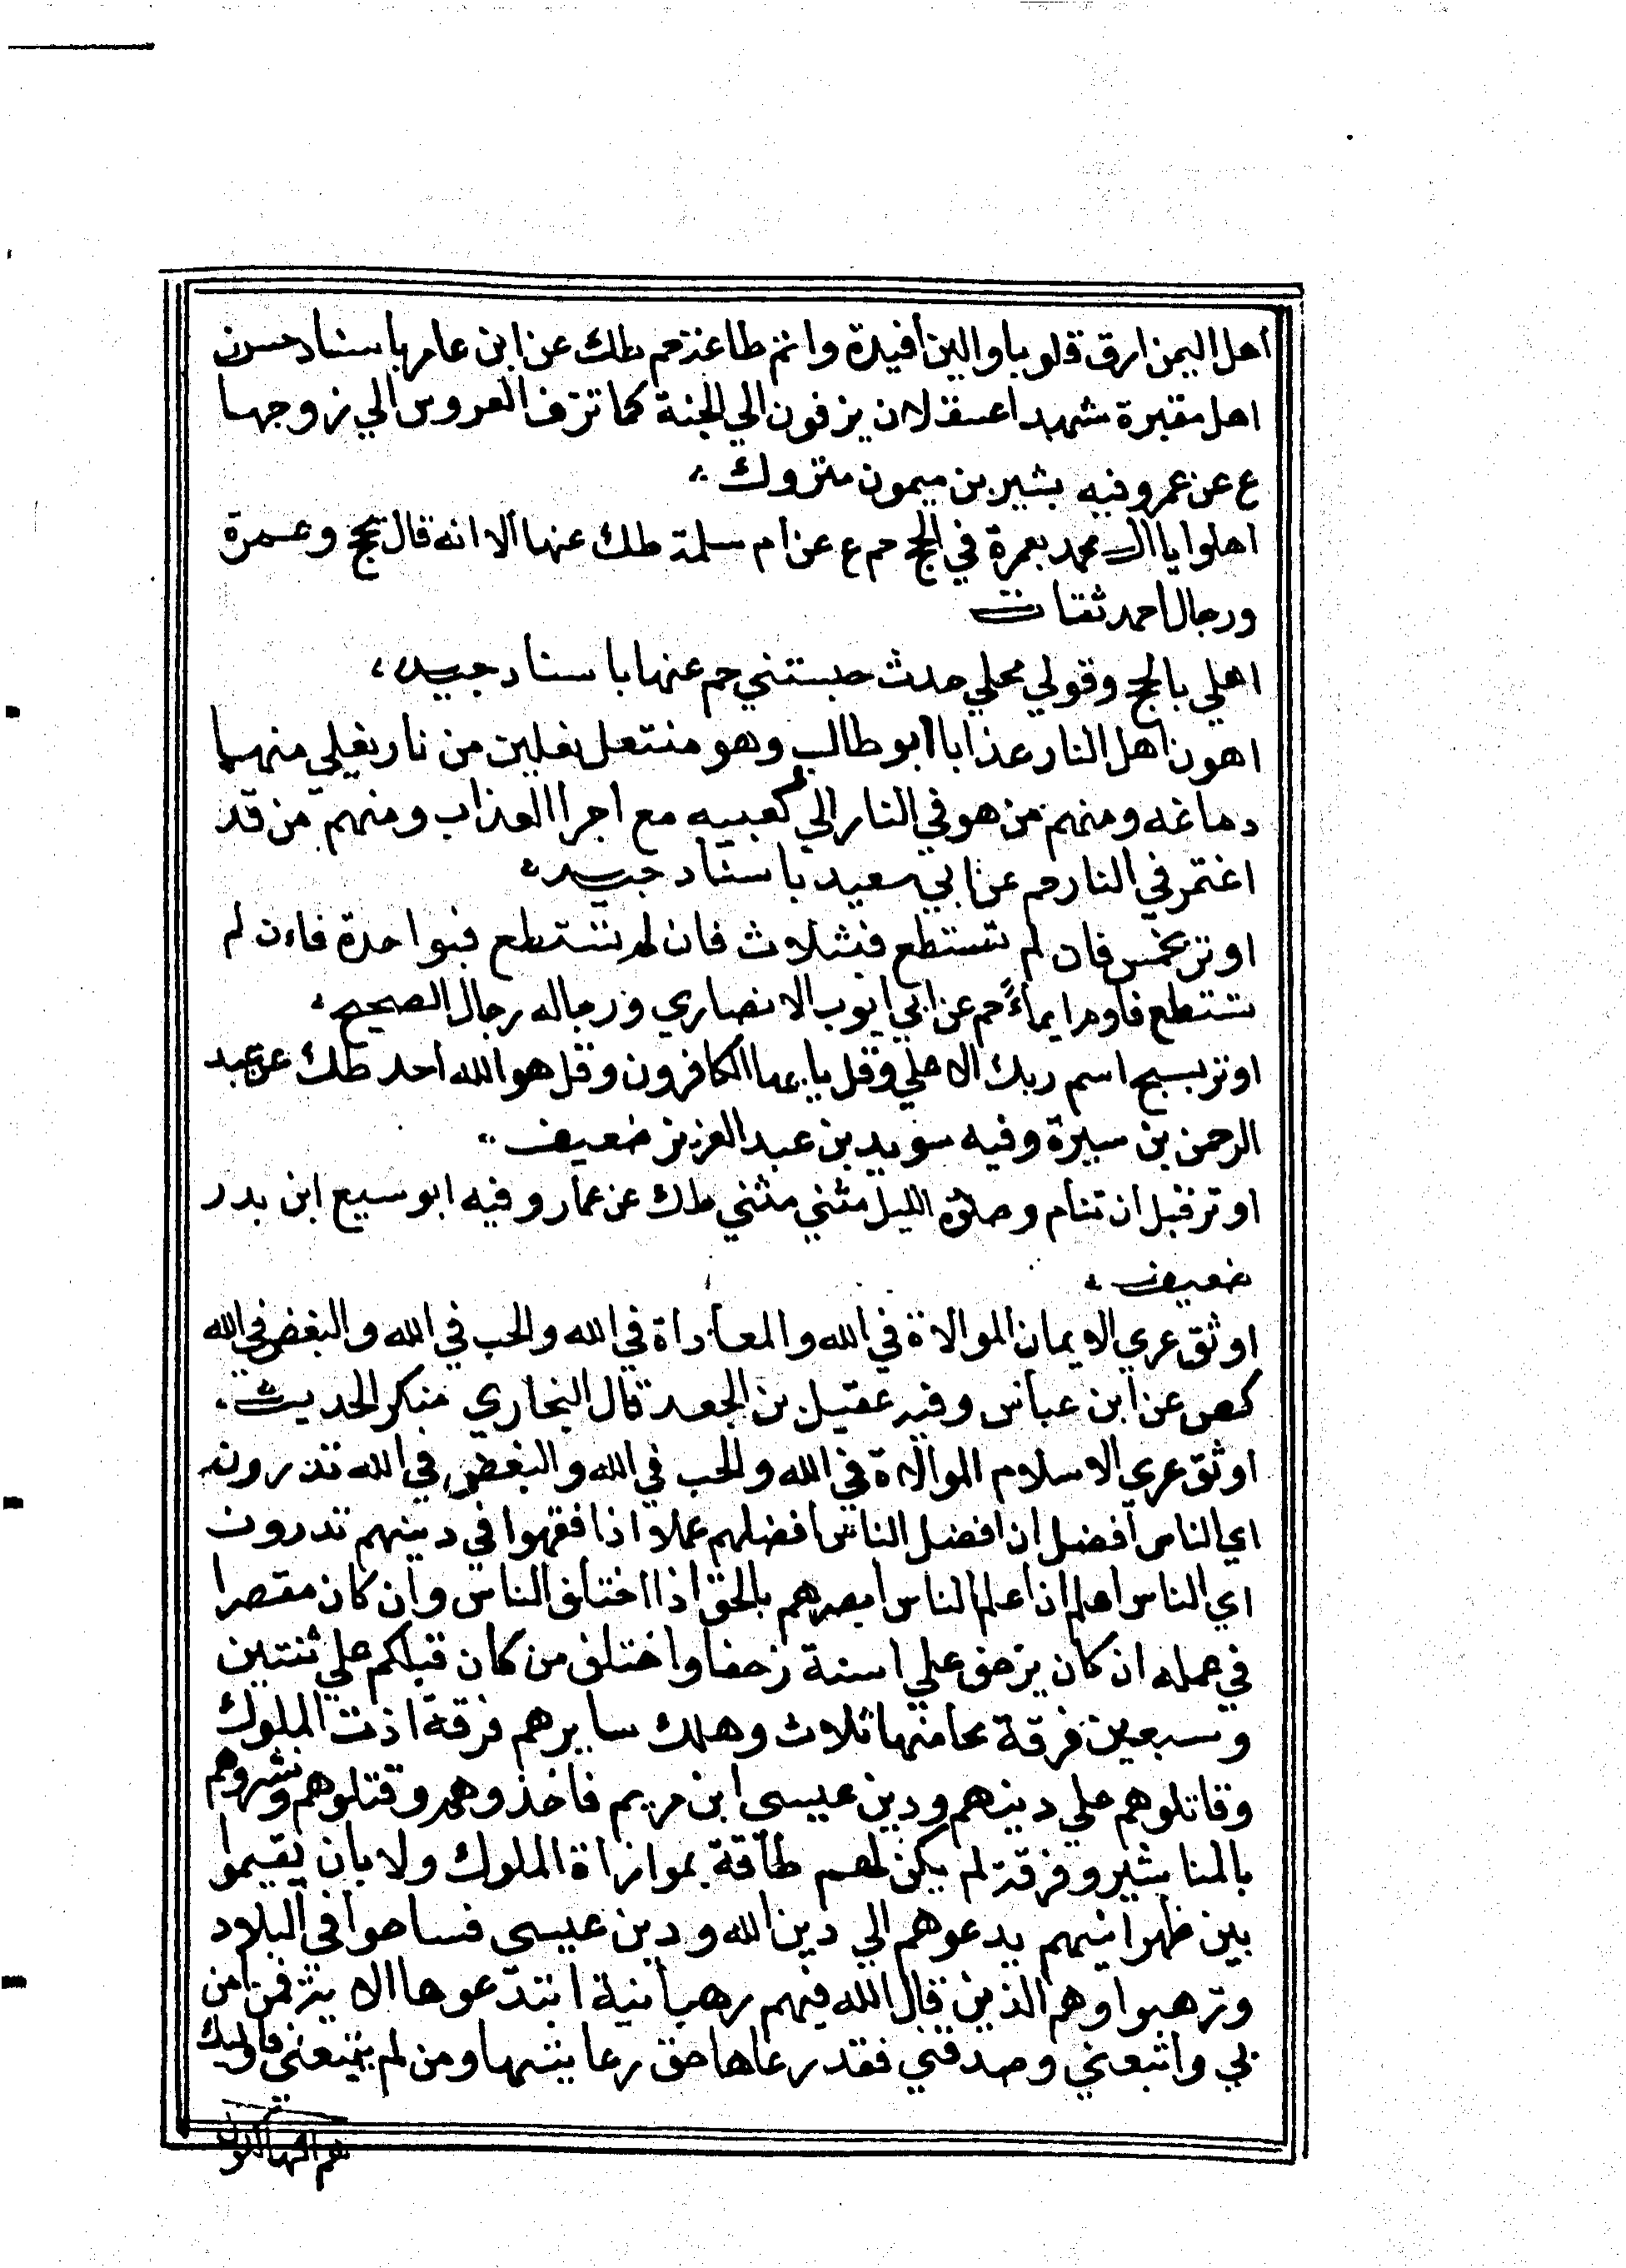 أهل اليمن ارق قلوبا والين أفيدة وانتم طاعة حم طك عن ابن عامر باسناد حسن
اهل مقبرة شهداء عسقلان يزفون الي الجنة كما تزف العروس الي زوجها
ع عن عمر وفيه بشير بن ميمون متروك
اهلوا يا ال محمد بعمرة في الحج حم ع عن ام سلمة طك عنها الا انه قال بحج وعمرة
ورجال احمد ثقات
اهلي بالحج وقولي محلي حدث حبستني حم عنها باسناد جيد
اهون أهل النار عذابا ابو طالب وهو منتعل نعلين من نار يغلي منهما
دماغه ومنهم من هو في النار الي كعبيه مع اجرا العذاب ومنهم من قد
اغتمر في النار حم عن ابي سعيد باسناد جيد
اوتر بخمس فان لم تستطع فبثلاث فان لم تستطع فبواحدة فان لم
تستطع فاومر ايماءً حم عن ابي ايوب الانصاري ورجاله رجال الصحيح
اوتر بسبح اسم ربك الاعلي وقل يا يها الكافرون وقل هو الله احد طك عن عبد
الرحمن بن سبرة وفيه سويد بن عبد العزيز ضعيف
اوتر قبل ان تنام وصلوة الليل مثني مثني طك عن عمار وفيه ابو سبيع ابن بدر
ضعيف
اوثق عري الايمان الموالاة في الله والمعاداة في الله والحب في الله والبغض في الله
كص عن ابن عباس وفيه عقيل بن الجعد قال البخاري منكر الحديث
اوثق عري الاسلام الموالاة في الله والحب في الله والبغض في الله تدرون
اي الناس أفضل ان افضل الناس افضلهم عملا اذا فقهوا في دينهم تدرون
اي الناس اعلم ان اعلم الناس ابصرهم بالحق اذا اختلف الناس وان كان مقصرا
في عمله ان كان يزحف علي استة زحفا واختلف من كان قبلكم علي ثنتين
وسبعين فرقة نجا منها ثلاث وهلك سايرهم فرقة اذت الملوك
وقاتلوهم علي دينهم ودين عيسى ابن مريم فاخذوهم وقتلوهم ونشروهم
بالمنا بشير وفرقة لم يكن لهم طاقة بموازاة الملوك ولا بان يقيموا
بين ظهرانيهم يدعوهم الي دين الله ودين عيسى فساحوا في البلاد
وترهبوا وهم الذين قال الله فيهم رهبانية ابتدعوها الا يترفمن امن
بي واتبعني وصدقني فقد رعاها حق رعايتها ومن لم يتبعني فاوليك
هم الهالكون